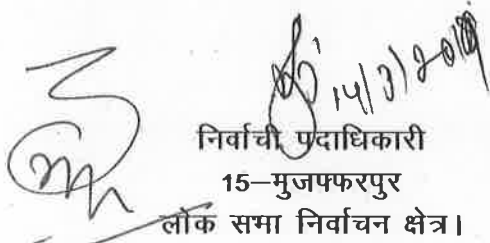 14/3/2019
निर्वाची पदाधिकारी
15–मुजफ्फरपुर
लोक सभा निर्वाचन क्षेत्र।